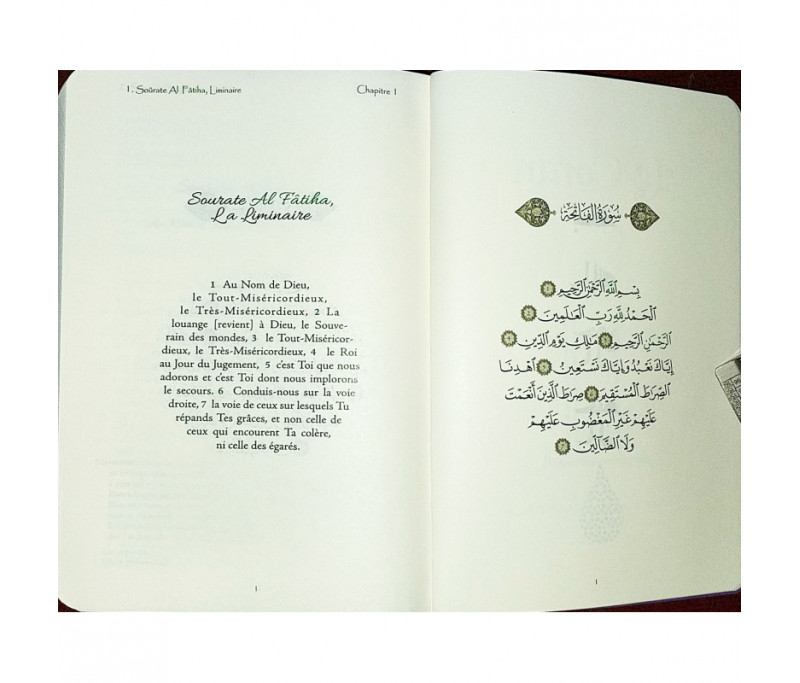 1. Soûrate Al Fâtiha, Liminaire
Chapitre 1
Sourate Al Fâtiha,
La Liminaire
1 Au Nom de Dieu,
le Tout-Miséricordieux,
le Très-Miséricordieux, 2 La
louange [revient] à Dieu, le Souve-
rain des mondes, 3 le Tout-Miséricor-
dieux, le Très-Miséricordieux, 4 le Roi
au Jour du Jugement, 5 c'est Toi que nous
adorons et c'est Toi dont nous implorons
le secours. 6 Conduis-nous sur la voie
droite, 7 la voie de ceux sur lesquels Tu
répands Tes grâces, et non celle de
ceux qui encourent Ta colère,
ni celle des égarés.
1
سُورَةُ الفَاتِحَة
بِسْمِ اللَّهِ الرَّحْمَٰنِ الرَّحِيمِ ١
الْحَمْدُ لِلَّهِ رَبِّ الْعَالَمِينَ ٢
الرَّحْمَٰنِ الرَّحِيمِ ٣ مَالِكِ يَوْمِ الدِّينِ ٤
إِيَّاكَ نَعْبُدُ وَإِيَّاكَ نَسْتَعِينُ ٥ اهْدِنَا
الصِّرَاطَ الْمُسْتَقِيمَ ٦ صِرَاطَ الَّذِينَ أَنْعَمْتَ
عَلَيْهِمْ غَيْرِ الْمَغْضُوبِ عَلَيْهِمْ
وَلَا الضَّالِّينَ ٧
1